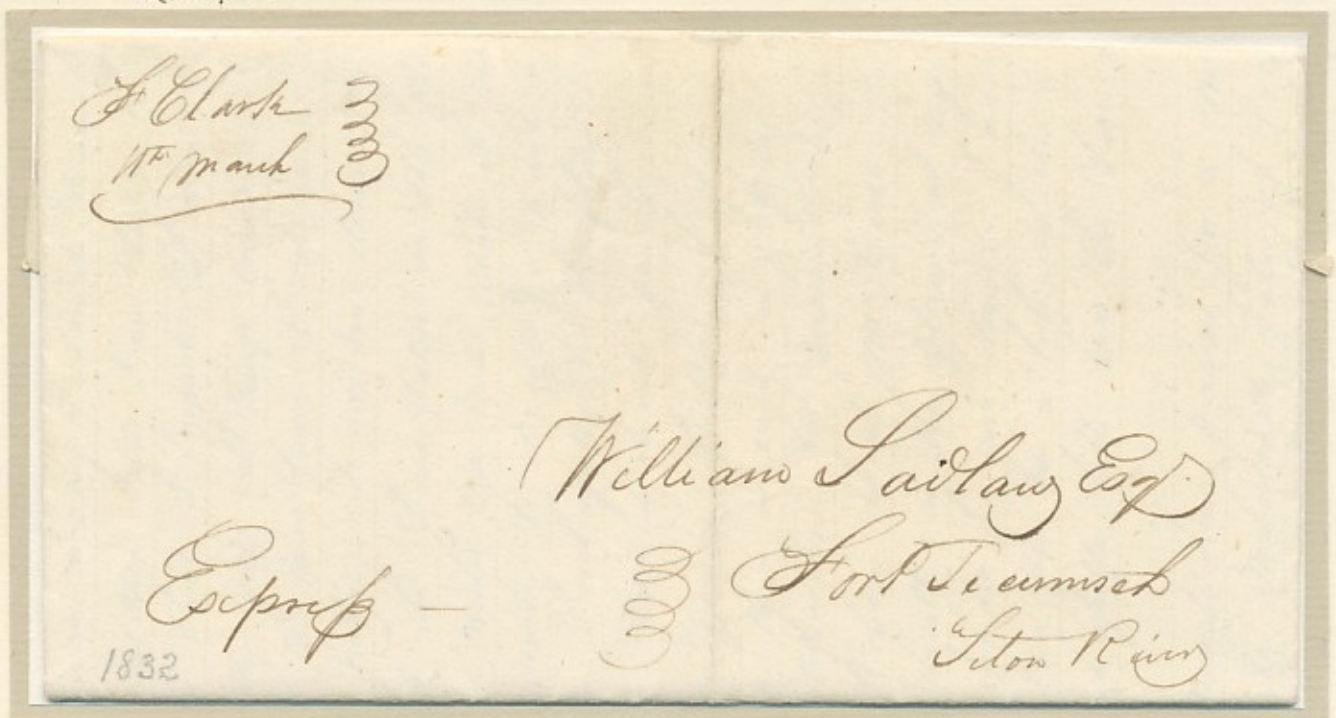 Ft Clark
11th March
William Laidlaw Esqr.
Fort Tecumseh
Teton River
Express —
1832